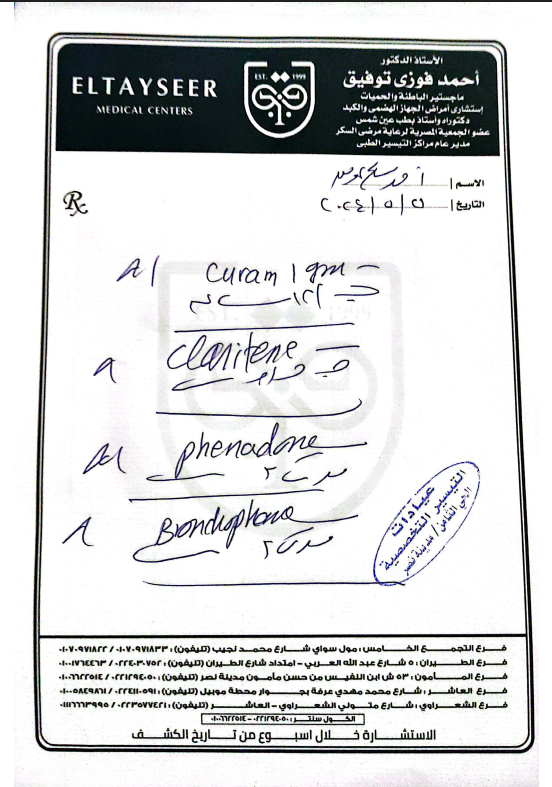 ELTAYSEER
MEDICAL CENTERS
EST. 1999
الأستاذ الدكتور
أحمد فوزى توفيق
ماجستير الباطنة والحميات
إستشارى أمراض الجهاز الهضمى والكبد
دكتوراه وأستاذ بطب عين شمس
عضو الجمعية المصرية لرعاية مرضى السكر
مدير عام مراكز التيسير الطبى
الاسم |
التاريخ | ٢٠٢٤ / ٥ /
Rx
Curam 1 gm
١٢
Claritene
phenadone
٢ مرات
Bronchophane
٢ مرات
عيادات
التيسير التخصصية
الحي الثامن / مدينة نصر
فـرع التجمـع الخـامـس : مول سواي شـارع محمـد نجيب (تليفون) : ٠١٠٧٠٩٧١٨٣٣ / ٠١٠٧٠٩٧١٨٢٢
فـرع الطـيـران : ٥ شارع عبد الله العـربي - امتداد شارع الطيران (تليفون) : ٠٢٢٤٠٣٠٧٥٢ / ٠١٠٠١٧٦٤٤٦٣
فـرع المـأمـون : ٥٣ ش ابن النفيس من حسن مأمون مدينة نصر (تليفون) : ٠٢٢١٢٩٤٠٥٠ / ٠١٠٠٦٦٢٢٥١٤
فـرع العـاشـر : شـارع محمد مهدي عرفة بجـوار محطة موبيل (تليفون) : ٠٢٢٤١١٠٥٩١ / ٠١٠٠٠٥٨٤٩٨٦١
فـرع الشعـراوي : شـارع متـولي الشعـراوي - العاشـر (تليفون) : ٠٢٢٣٥٧٧٤٢١ / ٠١١١٦٦٦٣٩٩٥
الكـول سنتـر : ٠٢٢١٢٩٤٠٥٠ - ٠١٠٠٦٦٢٢٥١٤
الاستشـارة خـلال اسبـوع مـن تـاريخ الكشـف